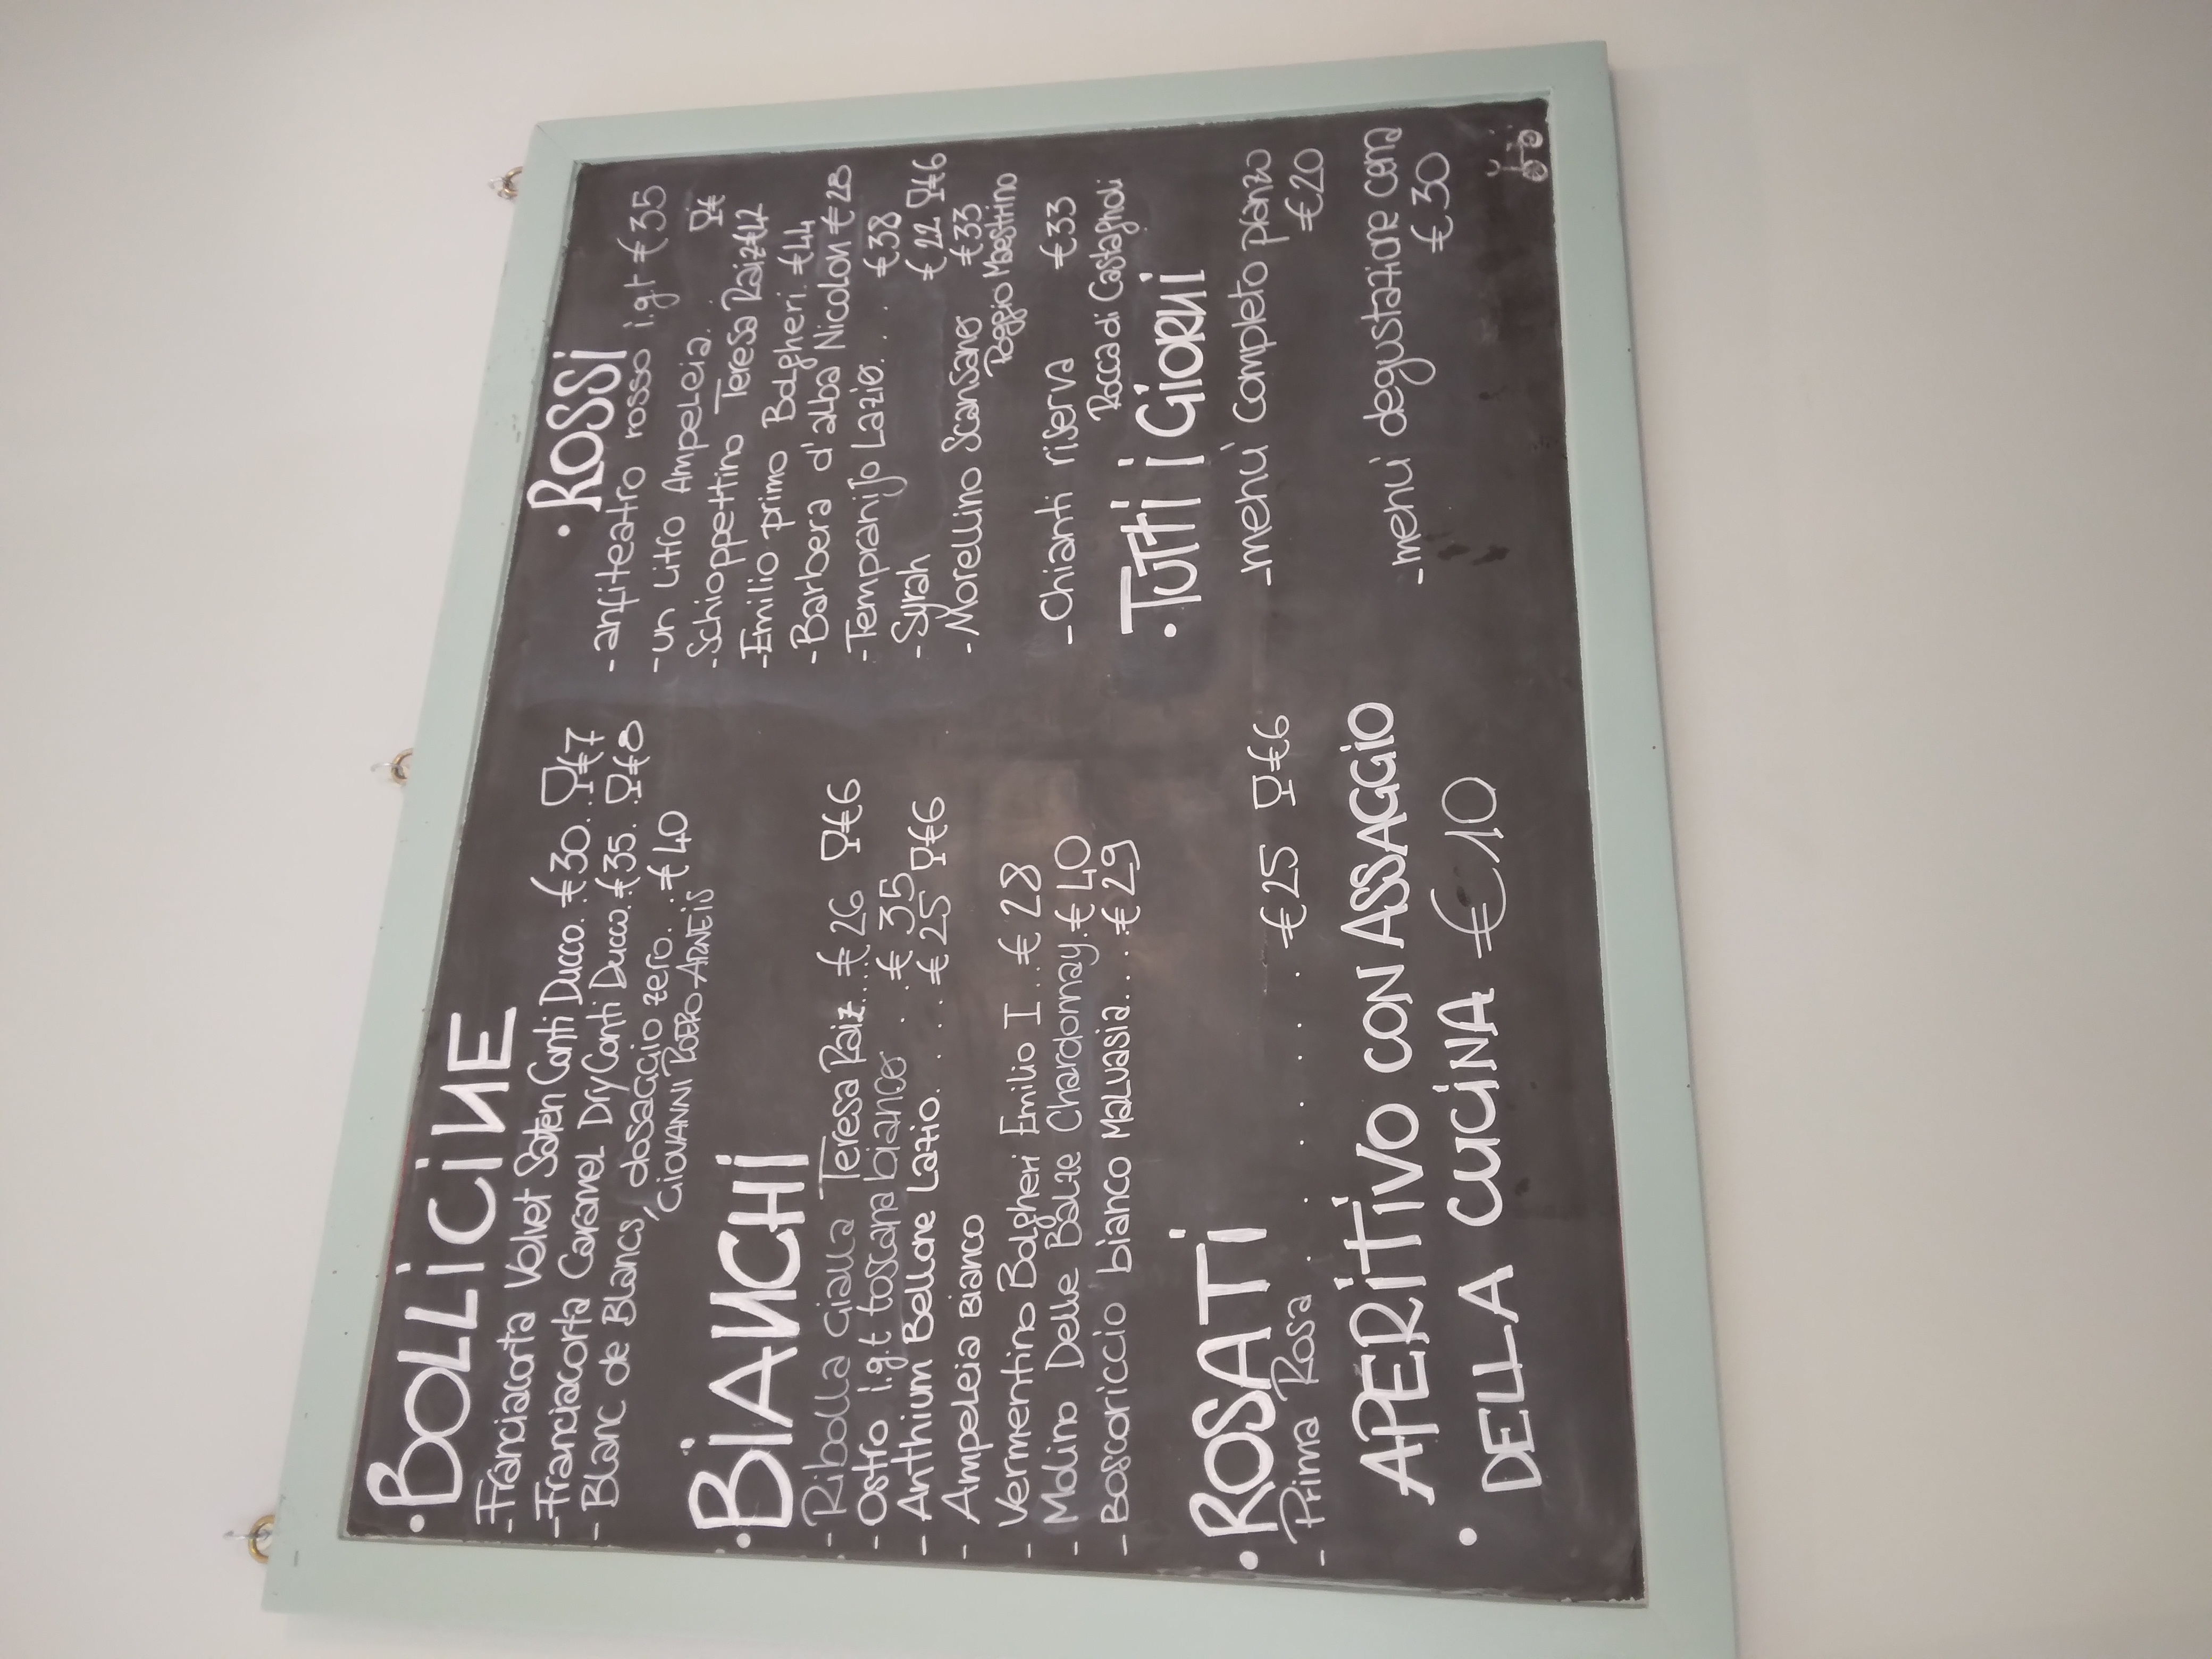 • BOLLICINE
- Franciacorta Velvet Saten Conti Ducco. €30.. €7
- Franciacorta Caramel Dry Conti Ducco. €35. €8
- Blanc de Blancs, dosaggio zero. . €40
GIOVANNI ROERO ARNEIS
• BIANCHI
- Ribolla Gialla Teresa Raiz... €26 €6
- Ostro i.g.t toscana bianco . . €35
- Anthium Bellone Lazio. . . . €25 €6
- Ampeleia Bianco
- Vermentino Bolgheri Emilio I ... €28
- Molino Delle Balze Chardonnay. €40
- Boscoriccio bianco Malvasia. . . €29
• ROSATI
- Prima Rosa . . . . . . . €25 €6
• APERITIVO CON ASSAGGIO
DELLA CUCINA €10
• ROSSI
- anfiteatro rosso i.g.t €35
- un Litro Ampeleia. €
- Schioppettino Teresa Raiz €42
- Emilio primo Bolgheri. €44
- Barbera d'alba Nicolon €28
- Tempranijo Lazio. . . €38
- Syrah €22 €6
- Morellino Scansano €33
Poggio Maestrino
- Chianti riserva €33
Rocca di Castagnoli
• TUTTI I GIORNI
- menù completo pranzo
€20
- menù degustazione cena
€30